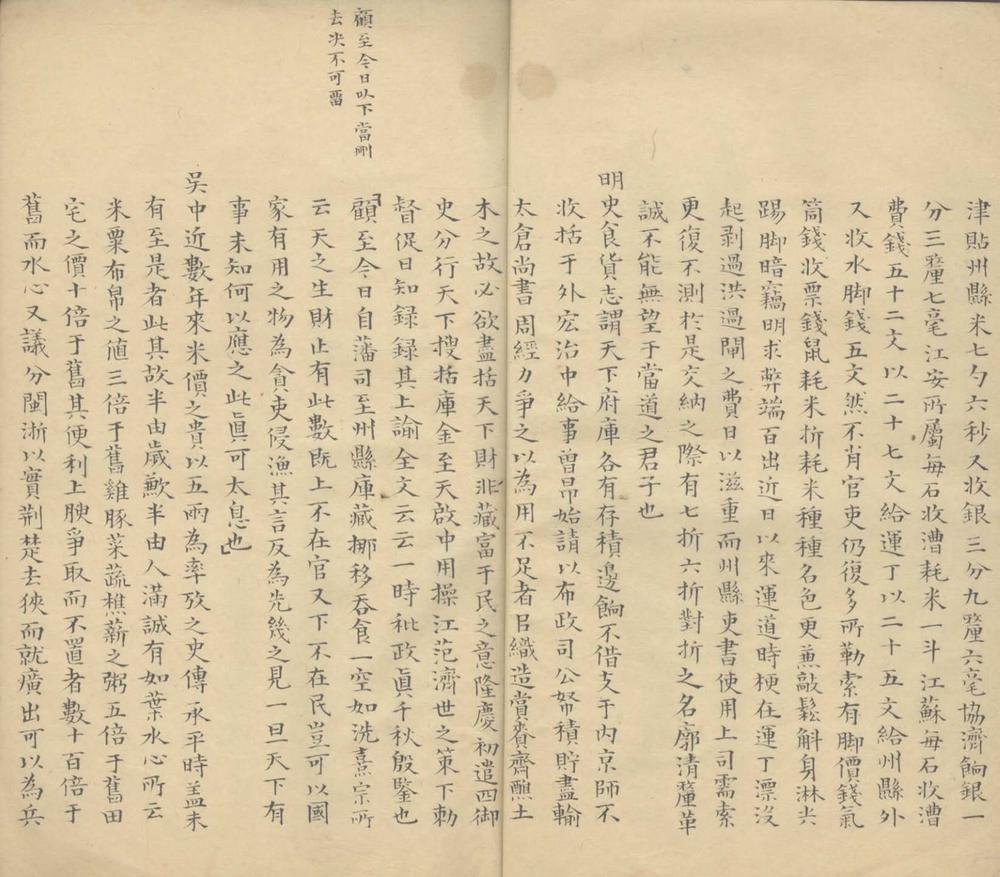 津貼州縣米七勺六秒又收銀三分九釐六毫協濟餉銀一
分三釐七毫江安所屬每石收漕耗米一斗江蘇每石收漕
費錢五十二文以二十七文給運丁以二十五文給州縣外
又收水脚錢五文然不肖官吏仍復多所勒索有脚價錢氣
筒錢收票錢鼠耗米折耗米種種名色更蒹敲鬆斛身淋尖
踢脚暗竊明求弊端百出近日以來運道時梗在運丁漂沒
起剥過洪過閘之費日以滋重而州縣吏書使用上司需索
更復不測於是交納之際有七折六折對折之名廓清釐革
誠不能無望于當道之君子也
明史食貨志謂天下府庫各有存積邊餉不借支于内京師不
收括于外宏治中給事曾昂始請以布政司公帑積貯盡輸
太倉尚書周經力爭之以為用不足者以織造賞賚齋醮土
木之故必欲盡括天下財非藏富于民之意隆慶初遣四御
史分行天下搜括庫金至天啟中用操江范濟世之策下勅
督促日知録録其上諭全文云云一時秕政眞千秋殷鑒也
顧至今日自藩司至州縣庫藏挪移吞食一空如洗熹宗所
云天之生財止有此數既上不在官又下不在民豈可以國
家有用之物為貪吏侵漁其言反為先幾之見一旦天下有
事未知何以應之此眞可太息也
顧至今日以下當刪
去决不可畱
吳中近數年來米價之貴以五兩為率攷之史傳承平時盖未
有至是者此其故半由歲歉半由人滿誠有如葉水心所云
米粟布帛之值三倍于舊雞豚菜蔬樵薪之粥五倍于舊田
宅之價十倍于舊其便利上腴爭取而不置者數十百倍于
舊而水心又議分閩浙以實荆楚去狹而就廣出可以為兵